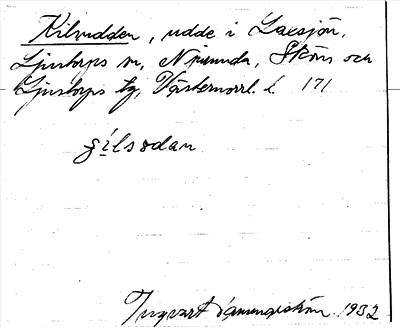 Kilsudden, udde i Laxsjön,
Ljustorps sn, Njurunda, Sköns och
Ljustorps tg, Västernorrl. l. 171
Ingvart 1932